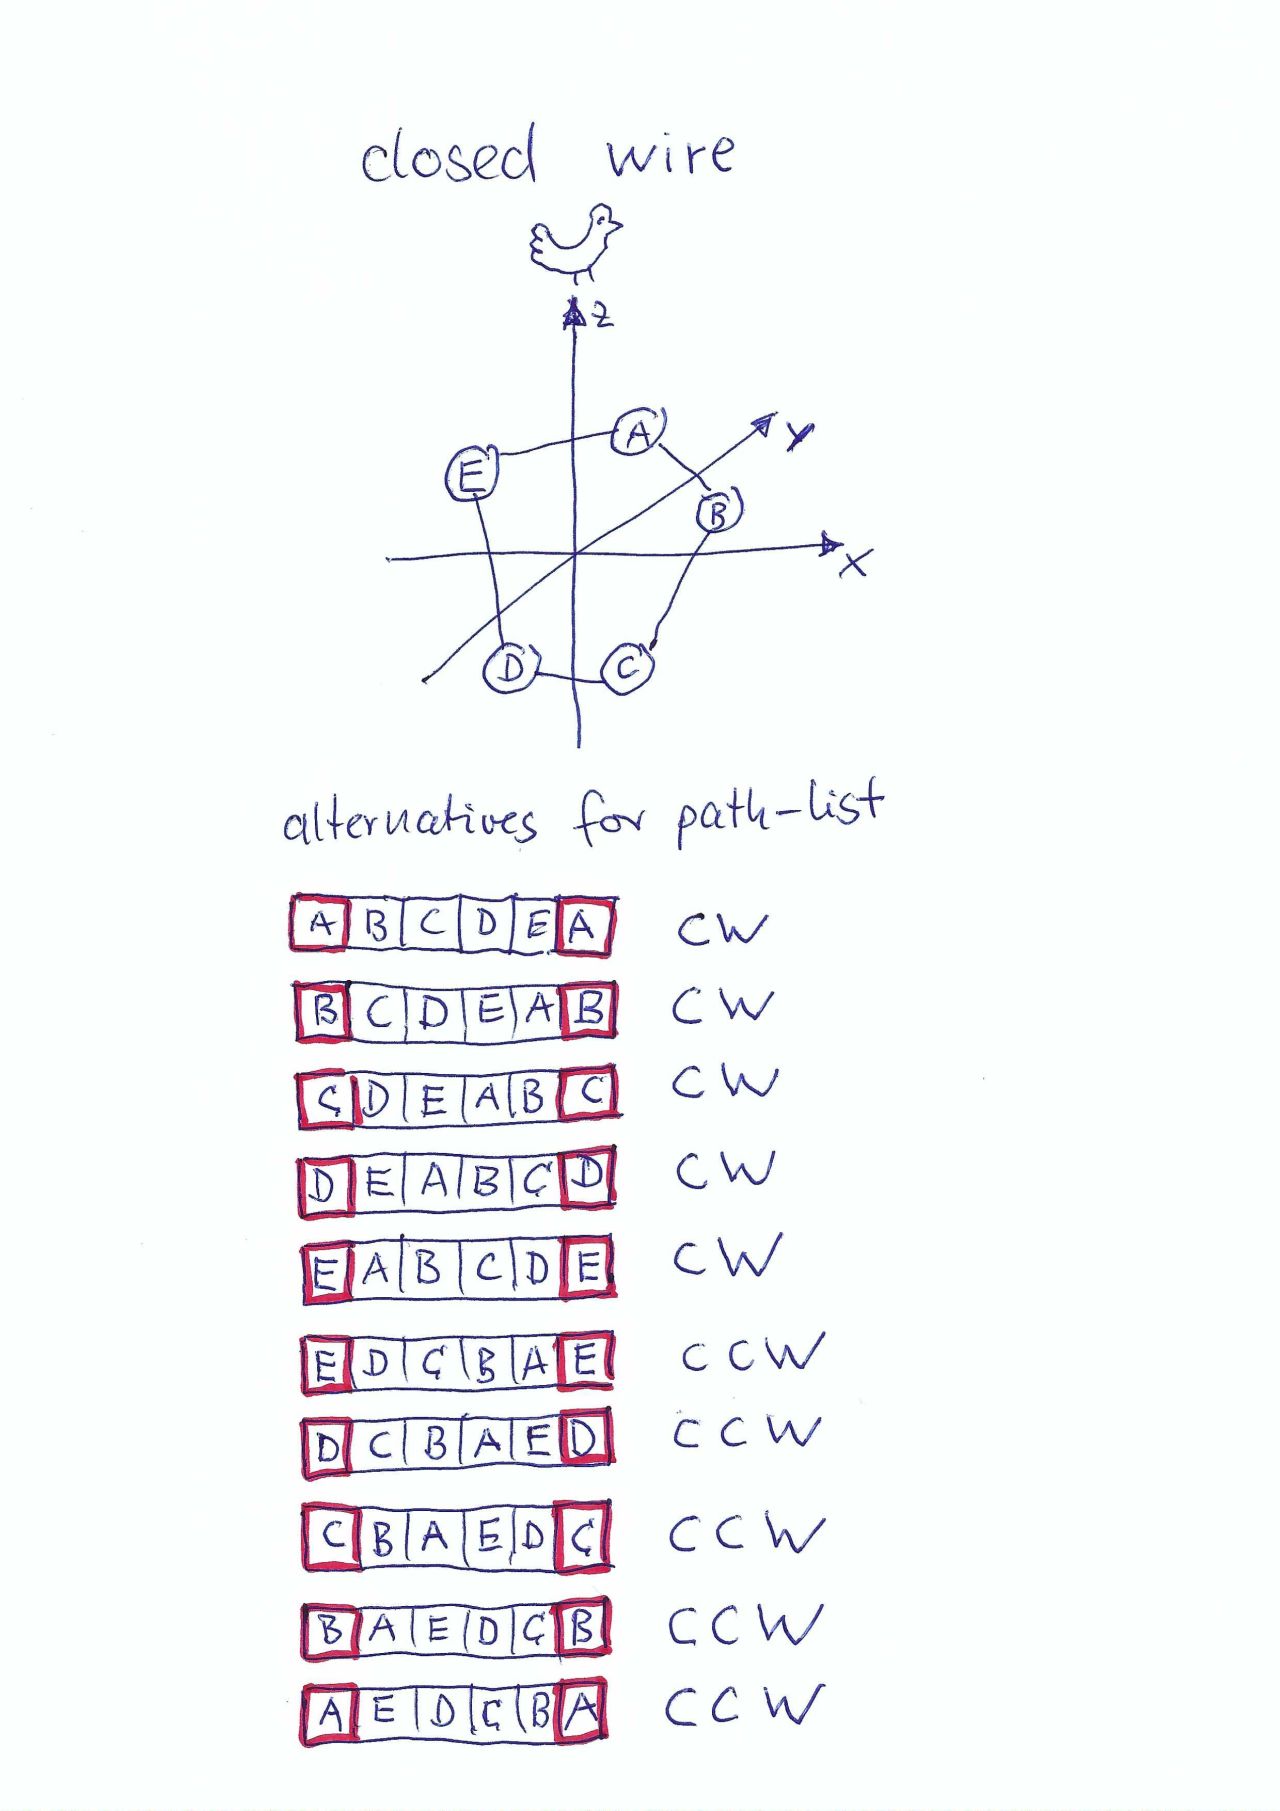 closed wire
Z
A
Y
E
B
X
D
C
alternatives for path-list
A B C D E A CW
B C D E A B CW
C D E A B C CW
D E A B C D CW
E A B C D E CW
E D C B A E CCW
D C B A E D CCW
C B A E D C CCW
B A E D C B CCW
A E D C B A CCW